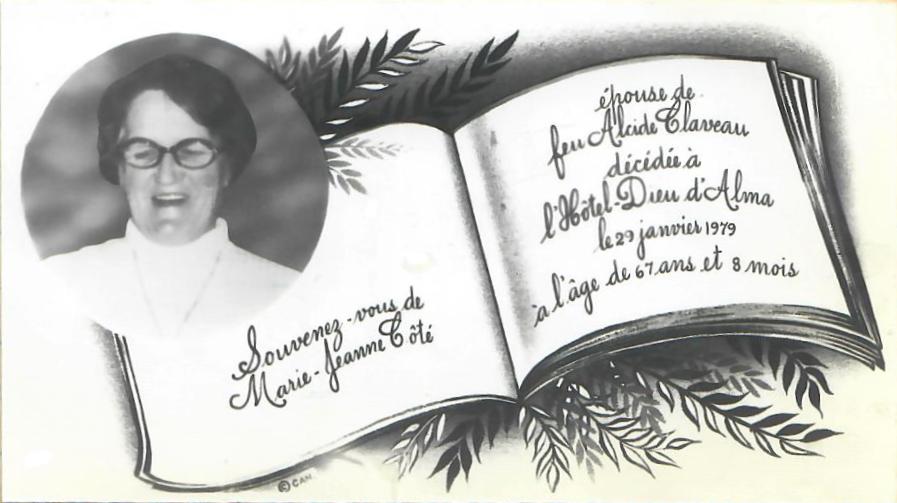 Souvenez-vous de
Marie-Jeanne Côté
épouse de
feu Alcide Claveau
décédée à
l'Hôtel-Dieu d'Alma
le 29 janvier 1979
à l'âge de 67 ans et 8 mois
© CAN.